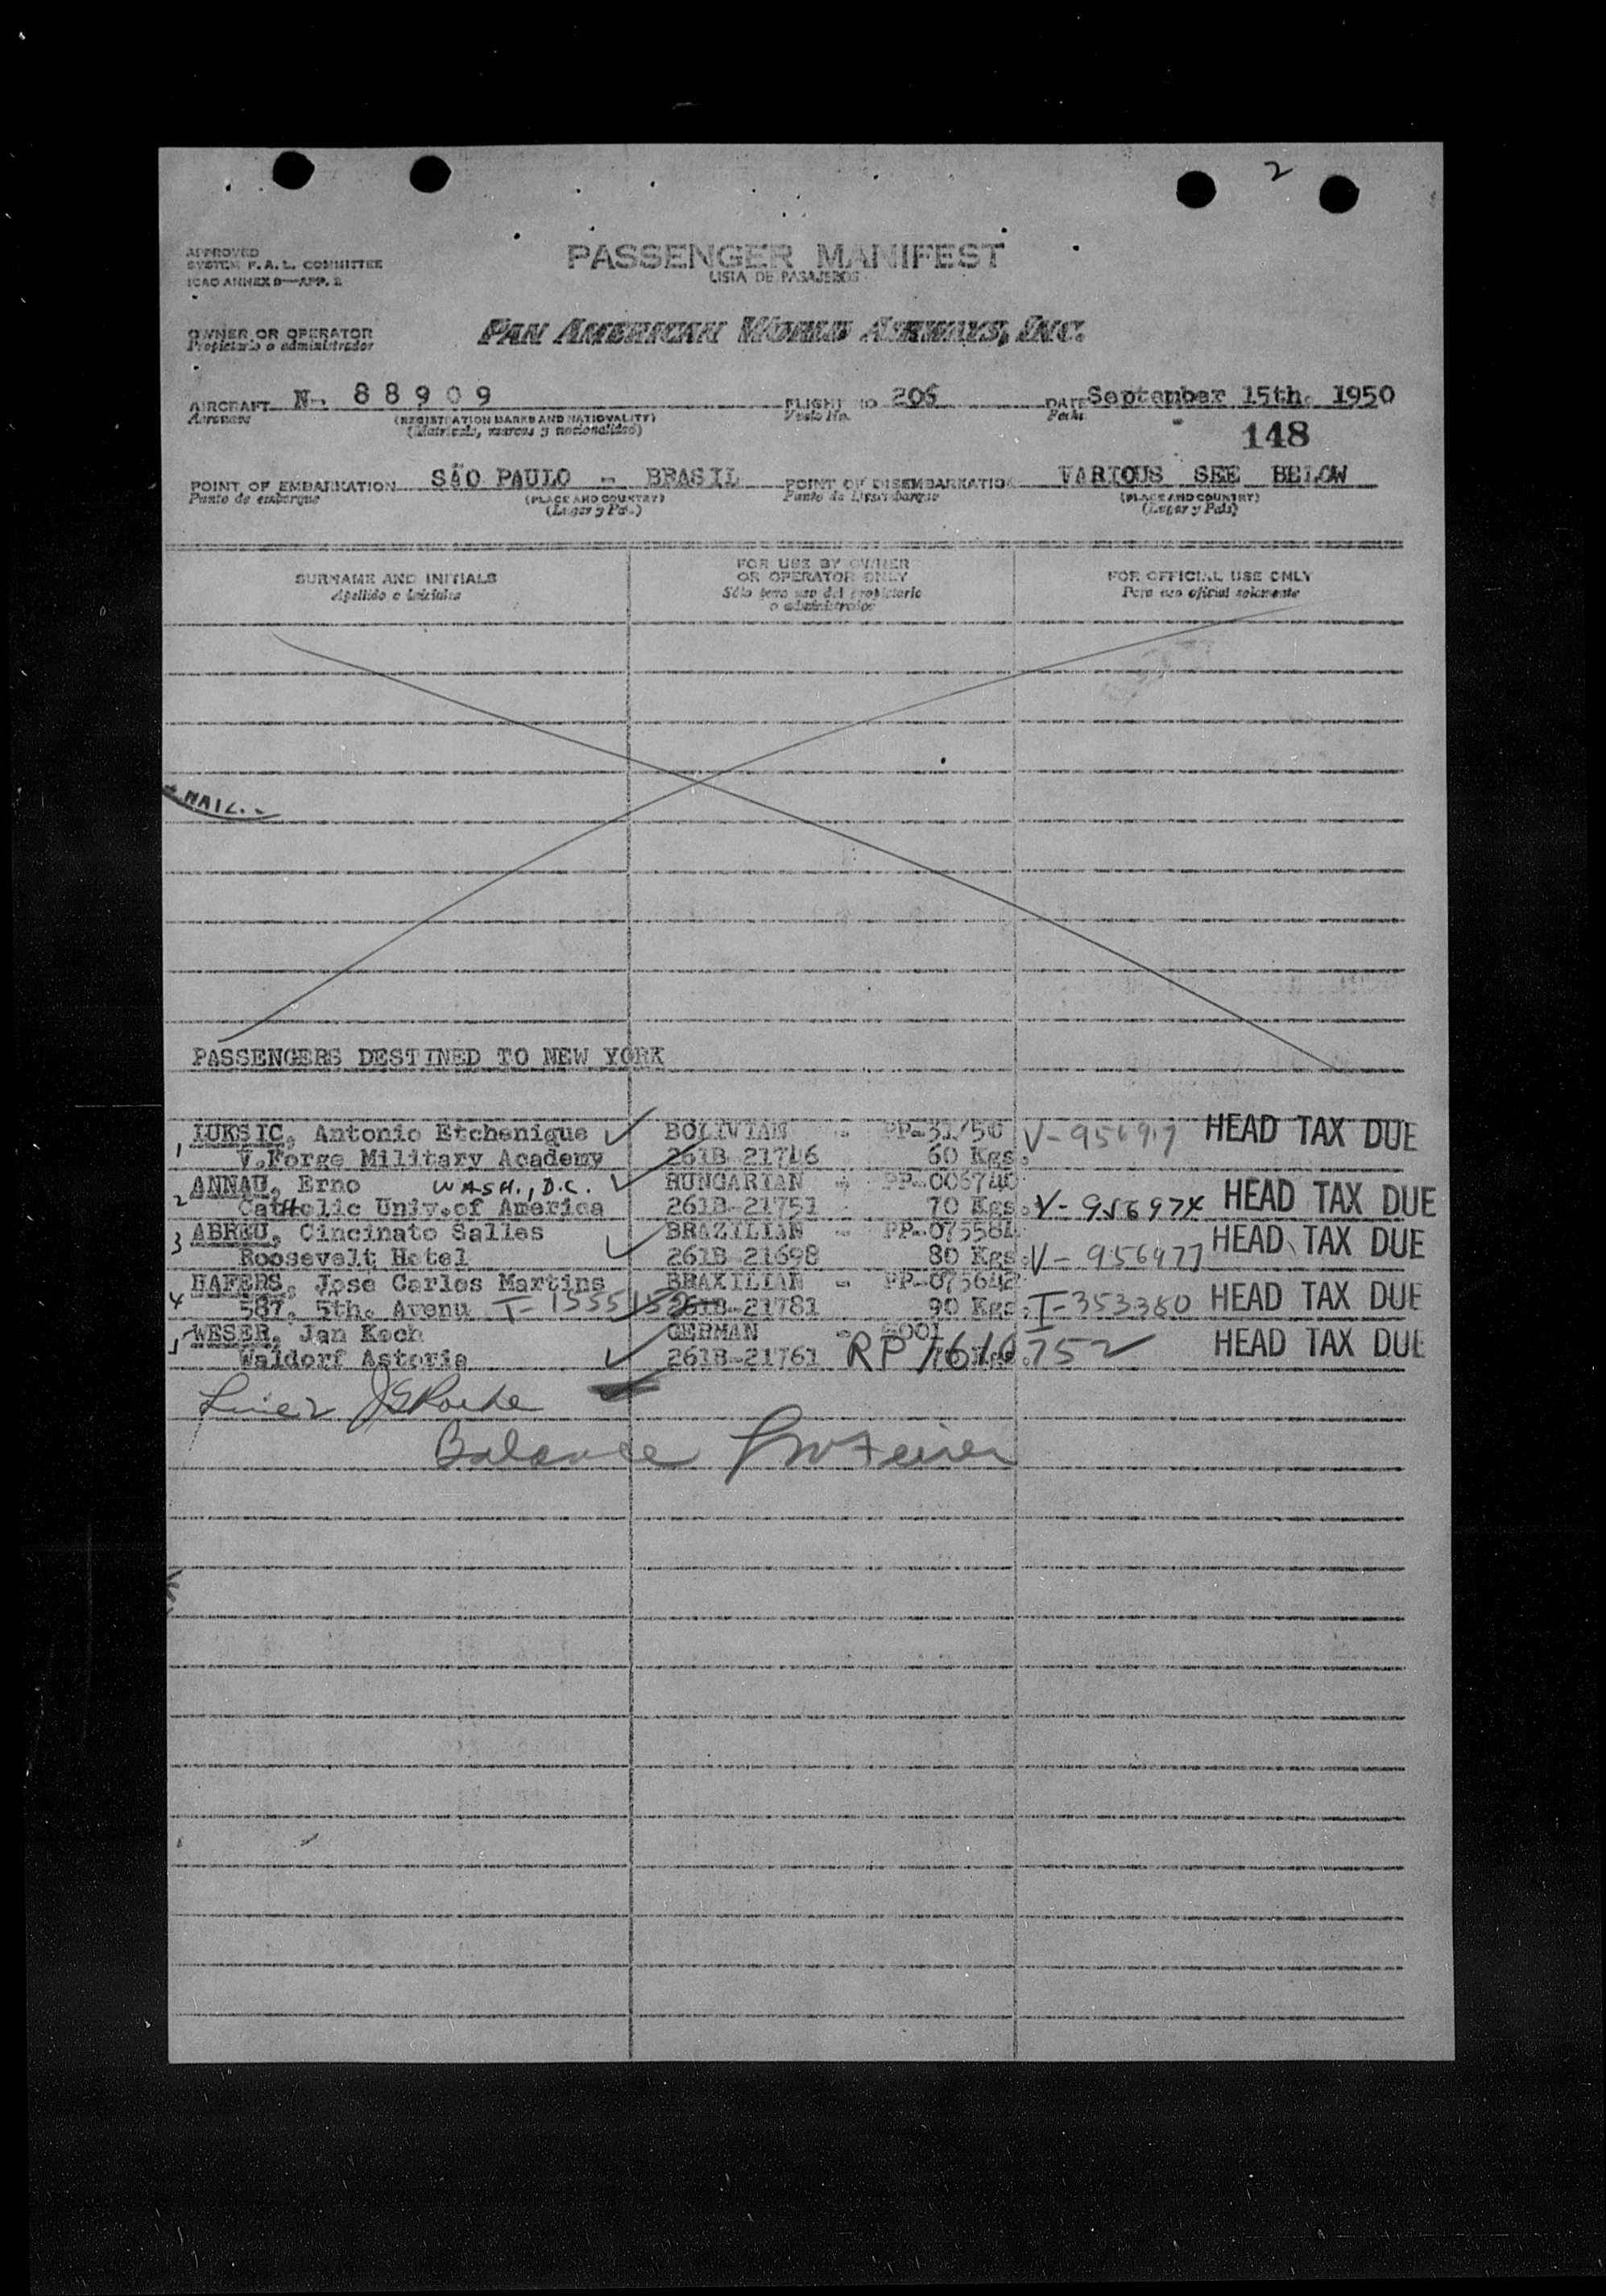 2
APPROVED
SYSTEM F.A.L. COMMITTEE
ICAO ANNEX 9—APP. 2
PASSENGER MANIFEST
LISTA DE PASAJEROS
OWNER OR OPERATOR
Propietario o administrador
PAN AMERICAN WORLD AIRWAYS, INC.
AIRCRAFT N- 88909 FLIGHT NO 206 DATE September 15th. 1950
Aeronave (REGISTRATION MARKS AND NATIONALITY) Vuelo No. Fecha
(Matricula, marcas y nacionalidad)
148
POINT OF EMBARKATION SÃO PAULO - BRASIL POINT OF DISEMBARKATION VARIOUS SEE BELOW
Punto de embarque (PLACE AND COUNTRY) Punto de Desembarque (PLACE AND COUNTRY)
(Lugar y País) (Lugar y País)
SURNAME AND INITIALS
Apellido e iniciales
FOR USE BY OWNER
OR OPERATOR ONLY
Sólo para uso del propietario
o administrador
FOR OFFICIAL USE ONLY
Para uso oficial solamente
MAIL.-
PASSENGERS DESTINED TO NEW YORK
1 LUKSIC, Antonio Etchenique BOLIVIAN - PP-31/50 HEAD TAX DUE
V.Forge Military Academy 261B-21746 60 Kgs.
2 ANNAU, Erno WASH., D.C. HUNGARIAN - PP-006740
Catholic Univ.of America 261B-21751 70 Kgs. V-956974 HEAD TAX DUE
3 ABREU, Cincinato Salles BRAZILIAN - PP-075584 HEAD TAX DUE
Roosevelt Hotel 261B-21698 80 Kgs. V-956977
4 HAFERS, Jose Carlos Martins BRAXILIAN - PP-075642
587, 5th. Avenu 261B-21781 90 Kgs. I-353380 HEAD TAX DUE
5 WESER, Jan Koch GERMAN HEAD TAX DUE
Waldorf Astoria 261B-21761 RP 1610752
Balance